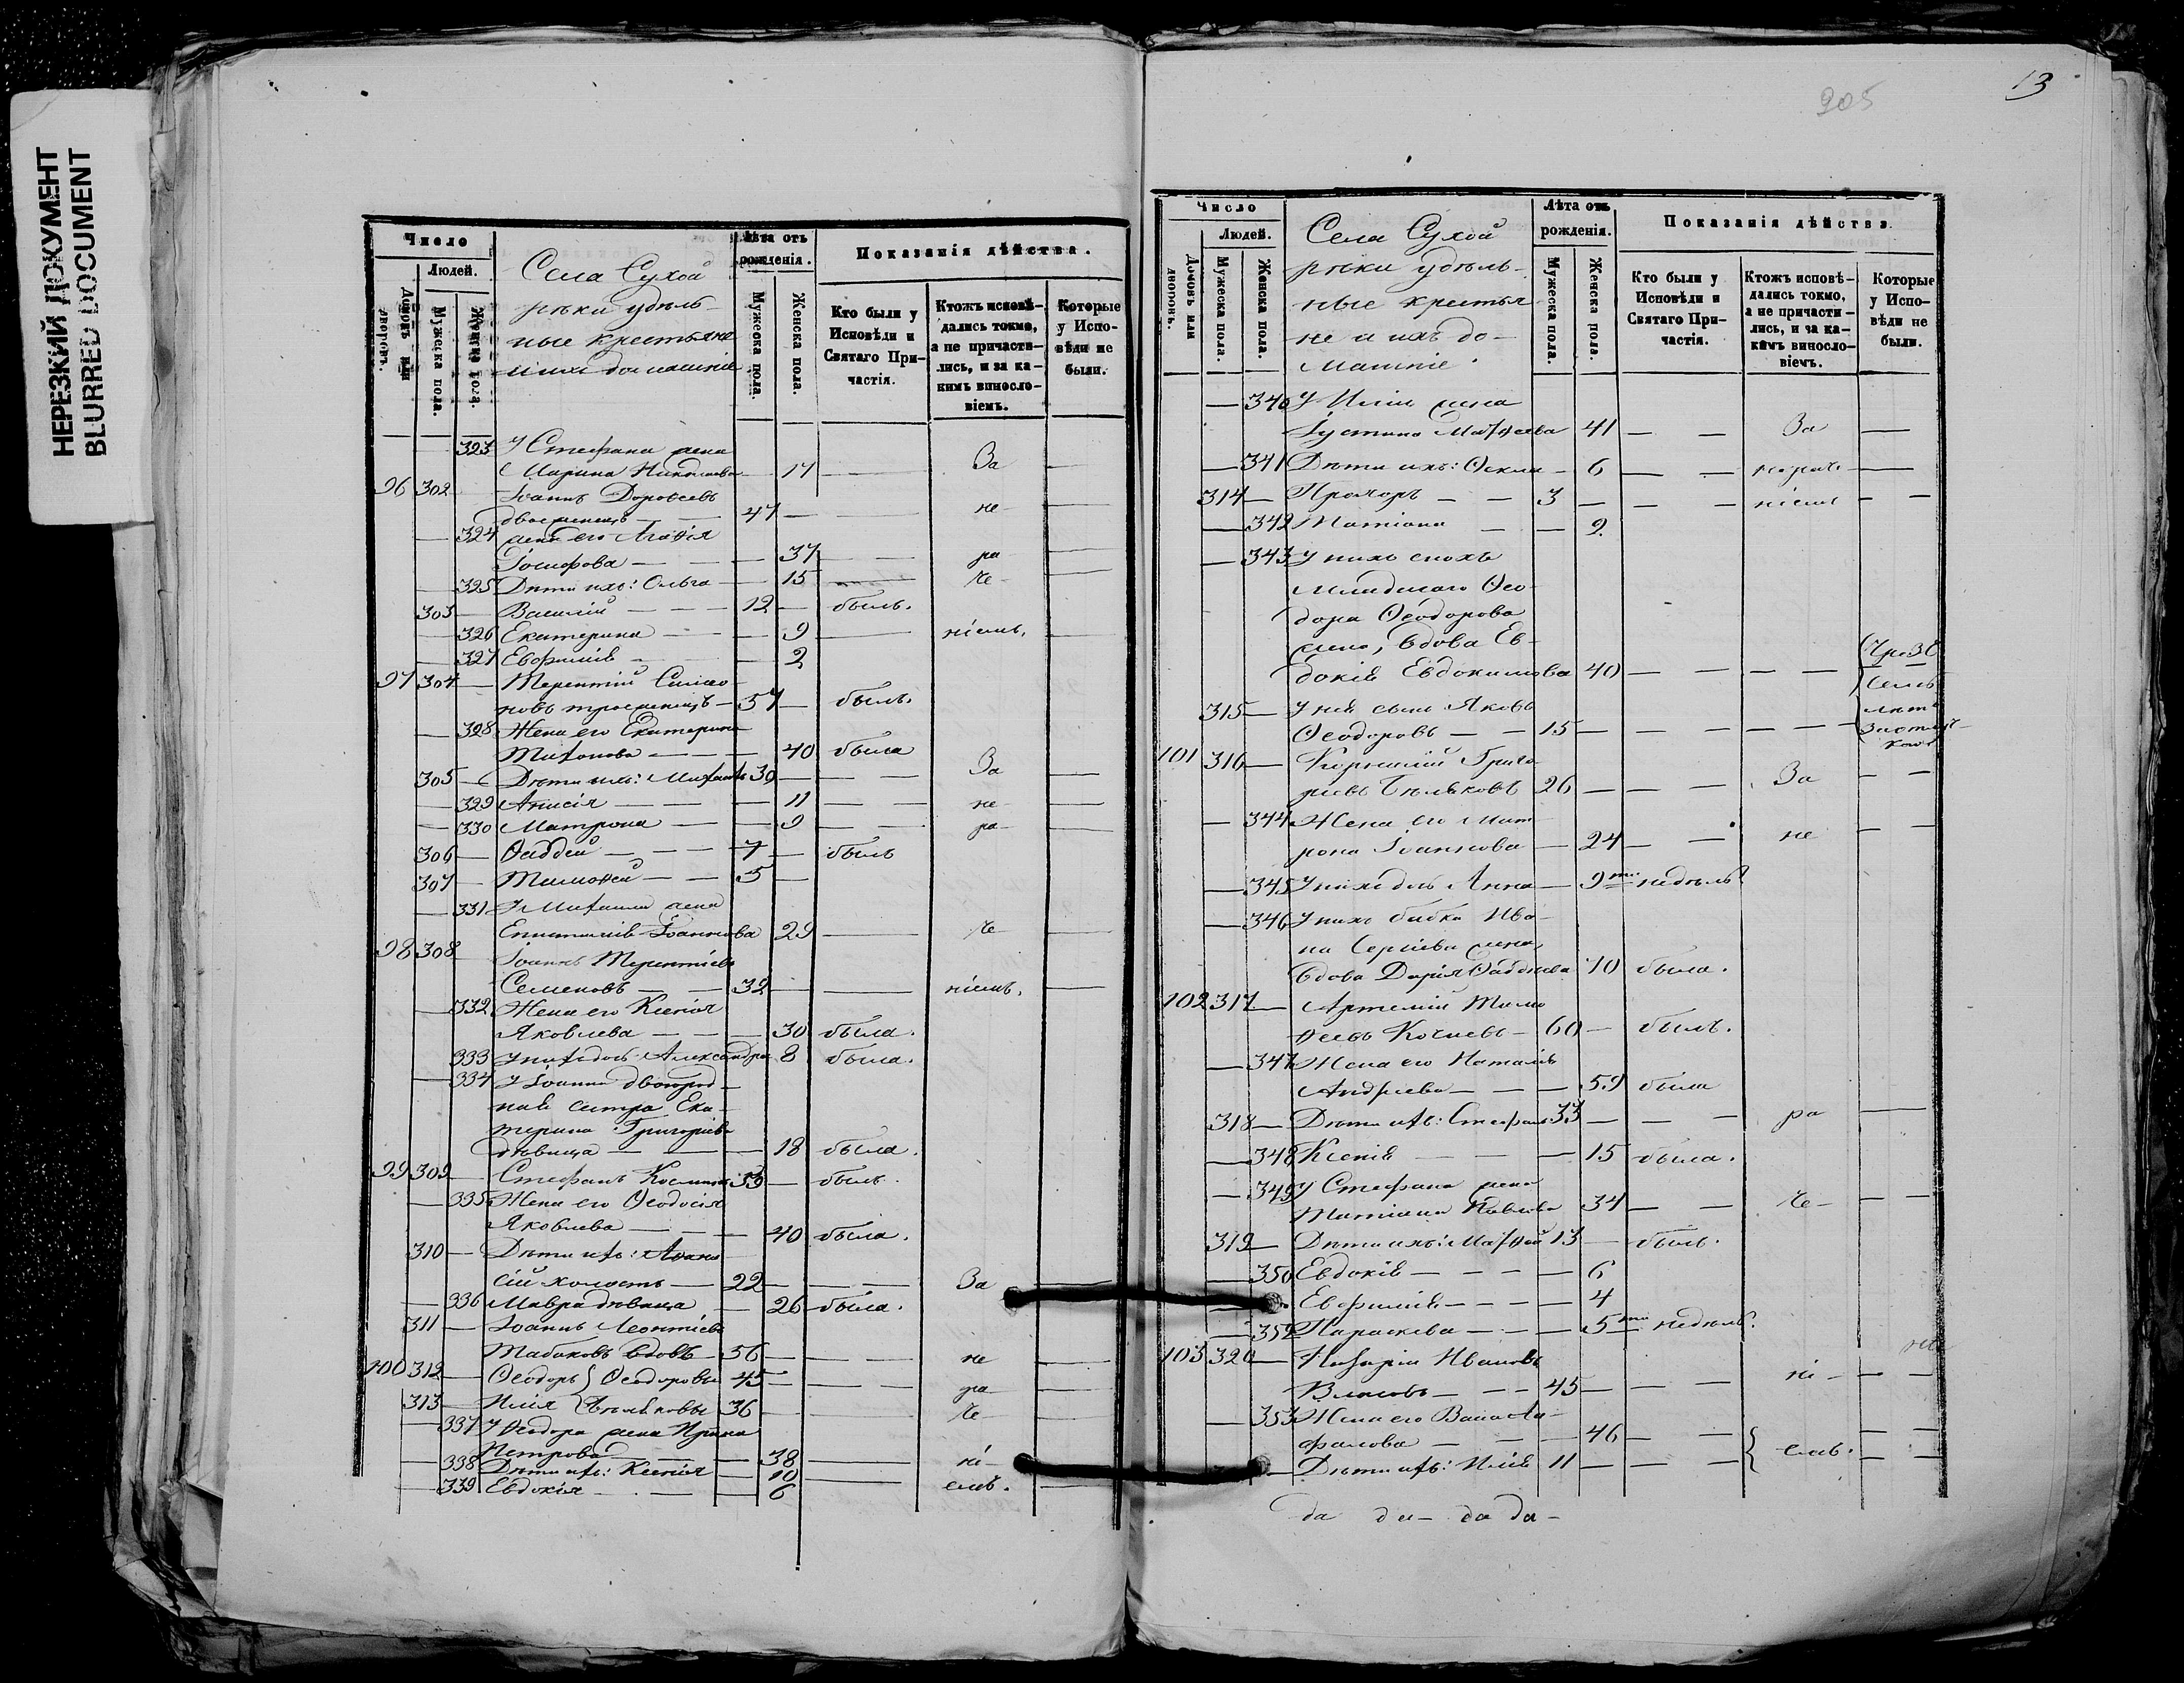 НЕРЕЗКИЙ ДОКУМЕНТ
BLURRED DOCUMENT
Число
Людей.
Домовъ или дворовъ.
Мужеска пола.
Женска пола.
Села Сухой
рѣки удѣль-
ные крестьяне
и ихъ домашніе
Лѣта отъ рожденія.
Мужеска пола.
Женска пола.
Показанія дѣйства.
Кто были у Исповѣди и Святаго Причастія.
Ктожъ исповѣдались токмо, а не причастились, и за какимъ винословіемъ.
Которые у Исповѣди не были.
323 У Стефана жена
Марина Николаева 17 — За —
96 302 Іоаннъ Дороѳеевъ
двоеженецъ — 47 — — не
324 жена его Агаѳія
Іосифова — 37 — — ра —
325 Дѣти ихъ: Ольга — 15 — че —
303 Василій — — — 12 — былъ.
326 Екатерина — — 9 — ніемъ.
327 Евфимія — — 2
97 304 — Терентій Симео-
новъ троеженецъ — 57 — былъ.
328 Жена его Екатерина
Тихонова — — — 40 была
305 — Дѣти ихъ: Михаилъ 30 — — За —
329 Анисія — — — 11 — не —
330 Матрона — — 9 — — ра —
306 — Ѳаддей — — — 7 — былъ
307 — Тимоѳей — — 5 —
331 У Михаила жена
Епистимія Іоаннова 29 — че —
98 308 Іоаннъ Терентіевъ
Семеновъ — — 32 — — ніемъ. —
332 Жена его Ксенія
Яковлева — — — 30 была.
333 У нихъ дочь Александра 8 была.
334 У Іоанна двоюрод-
ная сестра Ека-
терина Григорьева
дѣвица — — 18 была.
99 309 — Стефанъ Косминъ 39 — былъ.
335 Жена его Ѳеодосія
Яковлева — — — 40 была.
310 — Дѣти ихъ: Аѳана-
сій холостъ — 22 — — За —
336 Мавра дѣвица — 26 была.
311 — Іоаннъ Леонтіевъ
Табаковъ вдовъ — 56 — — не —
100 312 — Ѳеодоръ } Ѳеодоровы 45 — — ра —
313 — Илія } Бѣляковы 36 — — че —
337 У Ѳеодора жена Ирина
Петрова — — 38 — ні —
338 Дѣти ихъ: Ксенія — 10
339 Евдокія — — 6 — емъ. —
205
13
Число
Людей.
Домовъ или дворовъ.
Мужеска пола.
Женска пола.
Села Сухой
рѣки удѣль-
ные крестья-
не и ихъ до-
машніе
Лѣта отъ рожденія.
Мужеска пола.
Женска пола.
Показанія дѣйства.
Кто были у Исповѣди и Святаго Причастія.
Ктожъ исповѣдались токмо, а не причастились, и за какимъ винословіемъ.
Которые у Исповѣди не были.
— 340 У Иліи жена
Іустина Матѳеева 41 — — За —
— 341 Дѣти ихъ: Ѳекла — 6 — — нераче- —
314 — Прохоръ — — 3 — — ніемъ — —
— 342 Татіана — — 2
— 343 У нихъ сноха
младшаго Ѳео-
дора Ѳеодорова
жена, вдова Ев-
докія Евдокимова 40 — — — — Чрезъ семь лѣтъ
315 — У ней сынъ Яковъ
Ѳеодоровъ — — 15 — — — —
101 316 — Корнилій Григо-
рьевъ Бѣляковъ 26 — — — За — —
— 344 Жена его Мат-
рона Іоаннова — 24 — — не — —
— 345 У нихъ дочь Анна — 9ти недѣль
— 346 У нихъ бабка Ива-
на Сергіева жена,
вдова Дарія Ѳаддеева 70 была.
102 317 — Артемій Тимо-
ѳеевъ Кочневъ — 60 — былъ.
— 347 Жена его Наталія
Андреева — — — 59 была
318 — Дѣти ихъ: Стефанъ 33 — — — ра —
— 348 Ксенія — — — 15 была.
— 349 У Стефана жена
Татіана Павлова 34 — — че — — —
319 — Дѣти ихъ: Матѳей 13 — былъ.
— 350 Евдокія — — — 6
Евфимія — — — 4
— 352 Параскева — — — 5ти недѣль.
103 320 — Назарій Ивановъ
Власовъ — — — 45 — — — ні — — —
— 353 Жена его Васса Ага-
фонова — — — 46 — — } емъ. — —
— Дѣти ихъ: Илія 11 — — — — —
да да — да да —